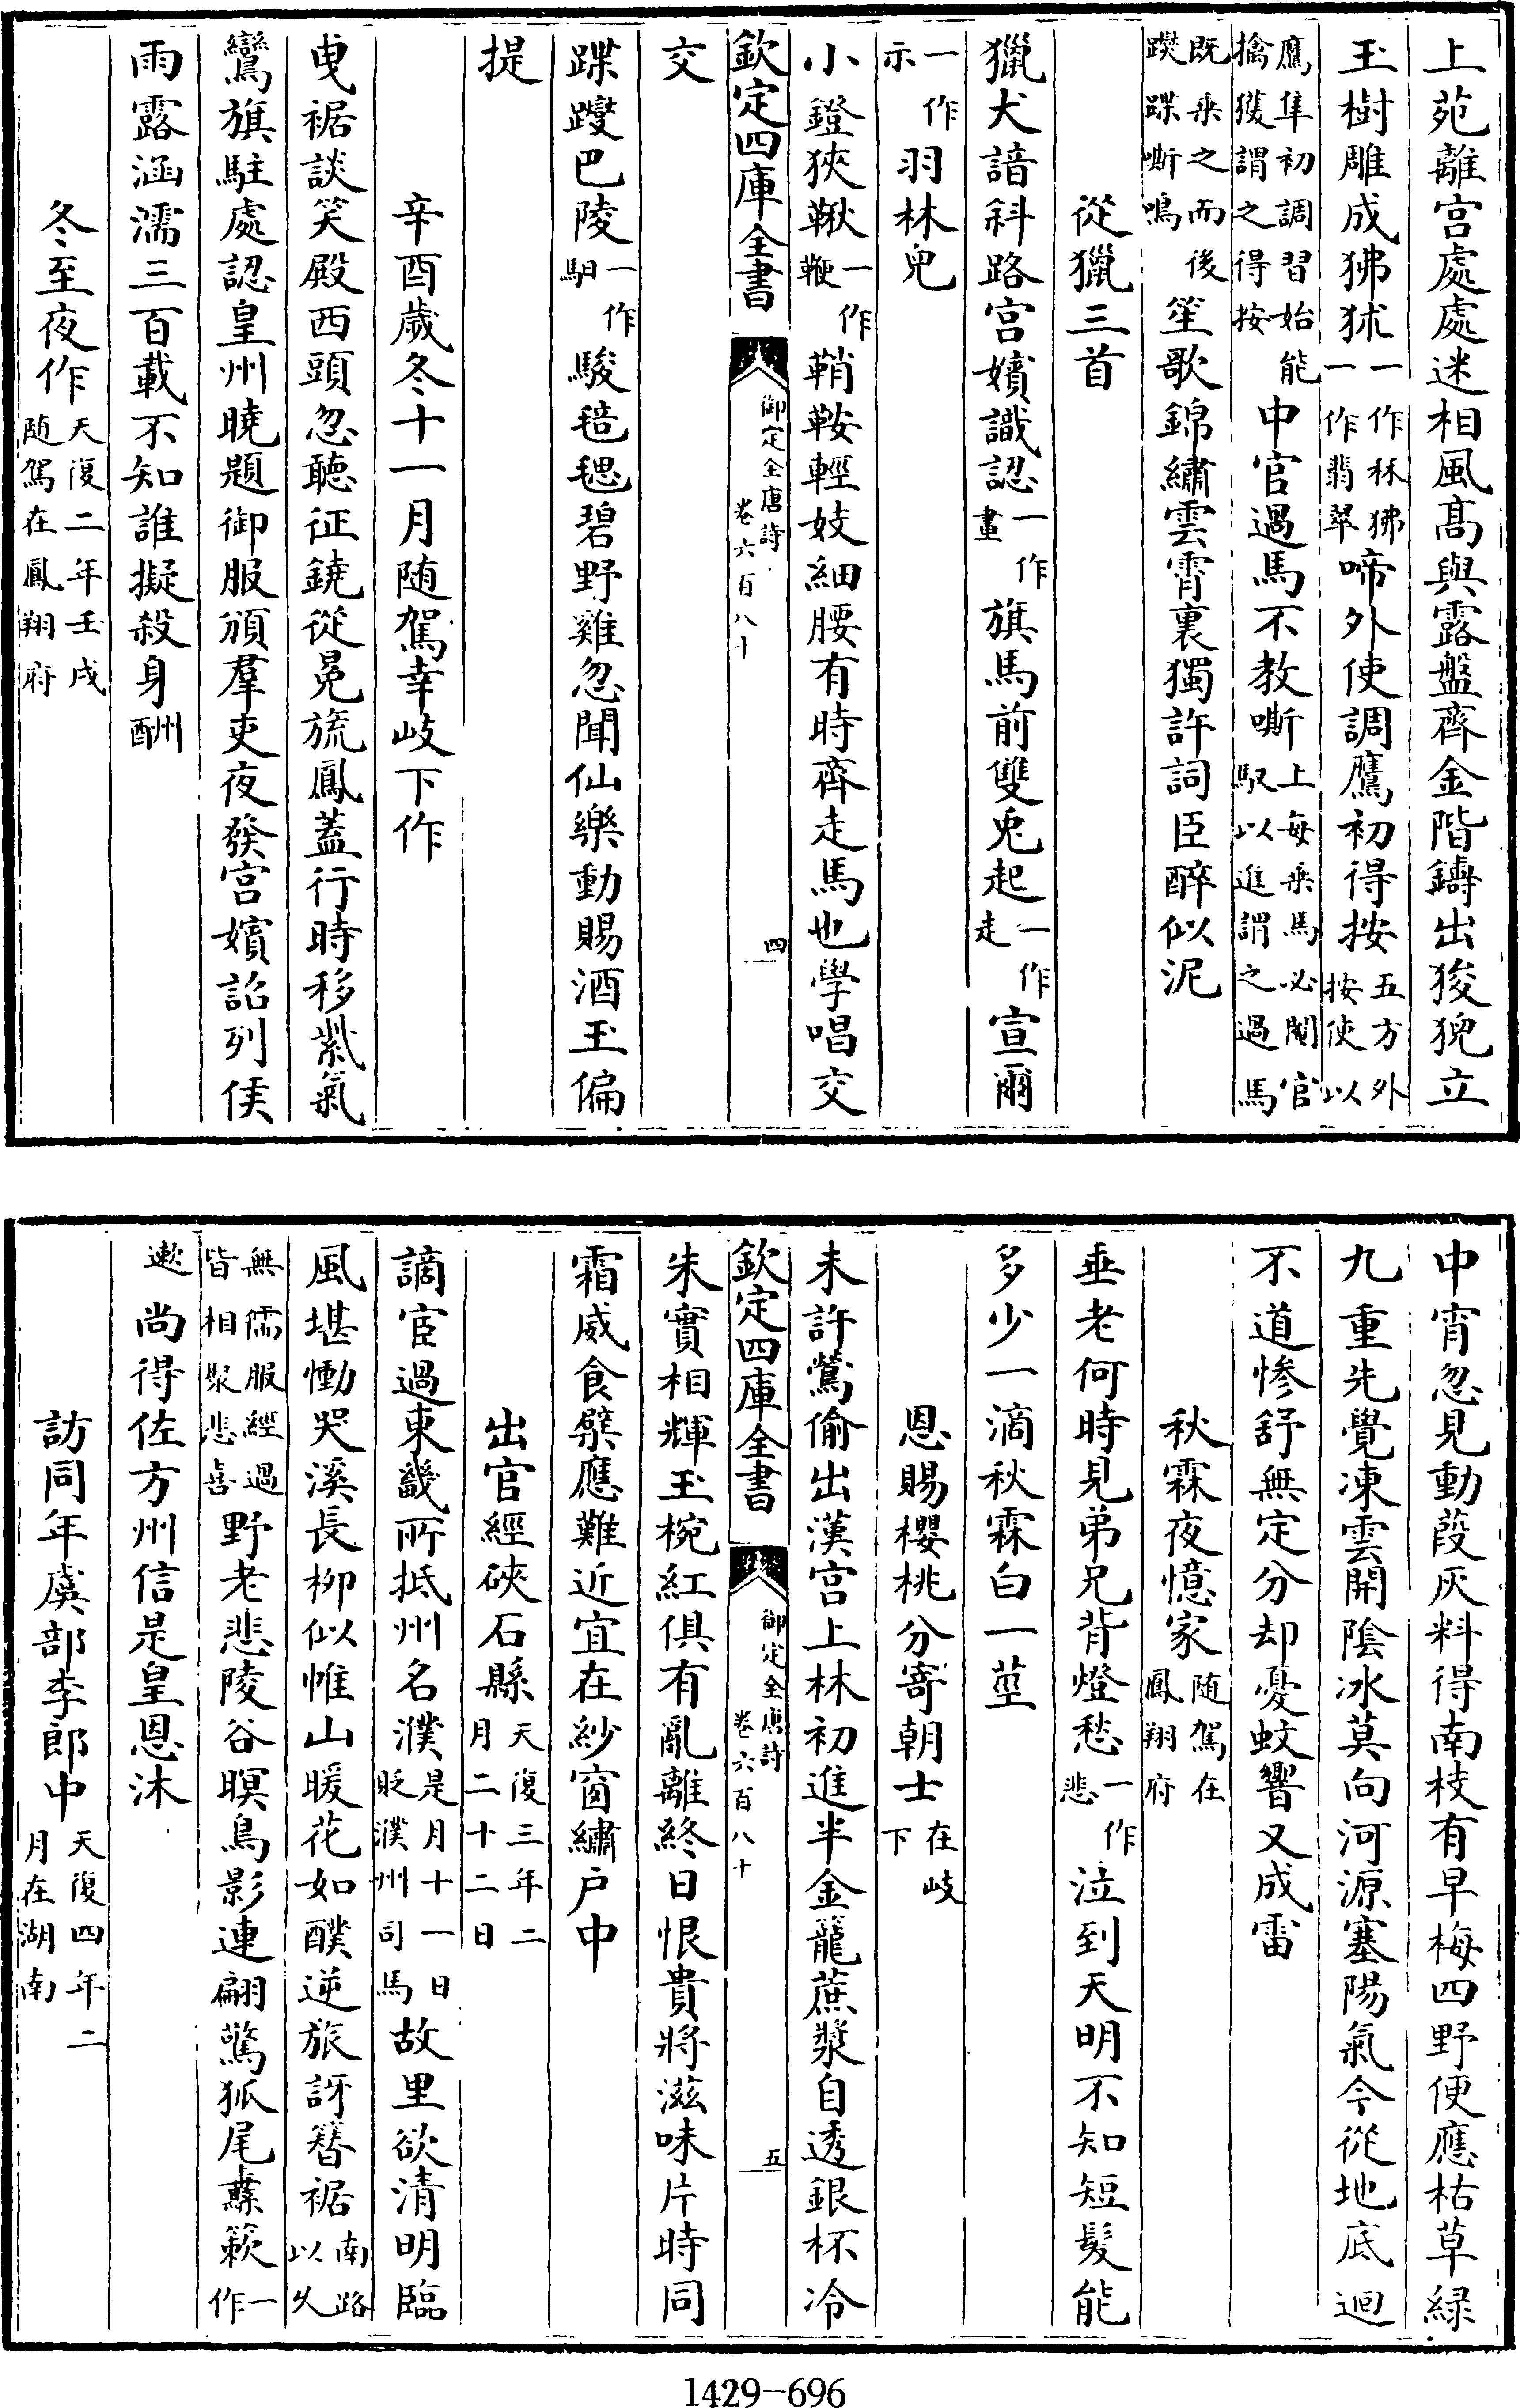 上苑離宫處處迷相風髙與露盤齊金階鑄出狻猊立
玉樹雕成狒狨一作秫狒一作翡翠啼外使調鷹初得按五方外按使以
鷹隼初調習始能擒獲謂之得按中官過馬不教嘶上每乘馬必閹官馭以進謂之過馬
既乘之而後躞蹀嘶鳴笙歌錦繡雲霄裏獨許詞臣醉似泥
從獵三首
獵犬諳斜路宫嬪識認一作畫旗馬前雙兎起一作走宣爾
一作示羽林兒
小鐙狹鞦一作鞭鞘鞍輕妓細腰有時齊走馬也學唱交
欽定四庫全書 御定全唐詩 卷六百八十 四
交
蹀躞巴陵一作馹駿毰毸碧野雞忽聞仙樂動賜酒玉偏
提
辛酉歲冬十一月随駕幸岐下作
曳裾談笑殿西頭忽聽征鐃從冕旒鳳蓋行時移紫氣
鸞旗駐處認皇州曉題御服頒羣吏夜發宫嬪詔列侯
雨露涵濡三百載不知誰擬殺身酬
冬至夜作天復二年壬戌随駕在鳳翔府
中宵忽見動葭灰料得南枝有早梅四野便應枯草緑
九重先覺凍雲開陰冰莫向河源塞陽氣今從地底迴
不道慘舒無定分却憂蚊響又成雷
秋霖夜憶家随駕在鳳翔府
垂老何時見弟兄背燈愁一作悲泣到天明不知短髮能
多少一滴秋霖白一莖
恩賜櫻桃分寄朝士在岐下
未許鶯偷出漢宫上林初進半金籠蔗漿自透銀杯冷
欽定四庫全書 御定全唐詩 卷六百八十 五
朱實相輝玉椀紅俱有亂離終日恨貴將滋味片時同
霜威食檗應難近宜在紗窗繡户中
出官經硤石縣天復三年二月二十二日
謫宦過東畿所抵州名濮是月十一日貶濮州司馬故里欲清明臨
風堪慟哭溪長栁似帷山暖花如醭逆旅訝簪裾南路以久
無儒服經過皆相聚悲喜野老悲陵谷暝鳥影連翩驚狐尾纛簌一作
遬尚得佐方州信是皇恩沐
訪同年虞部李郎中天復四年二月在湖南
1429-696